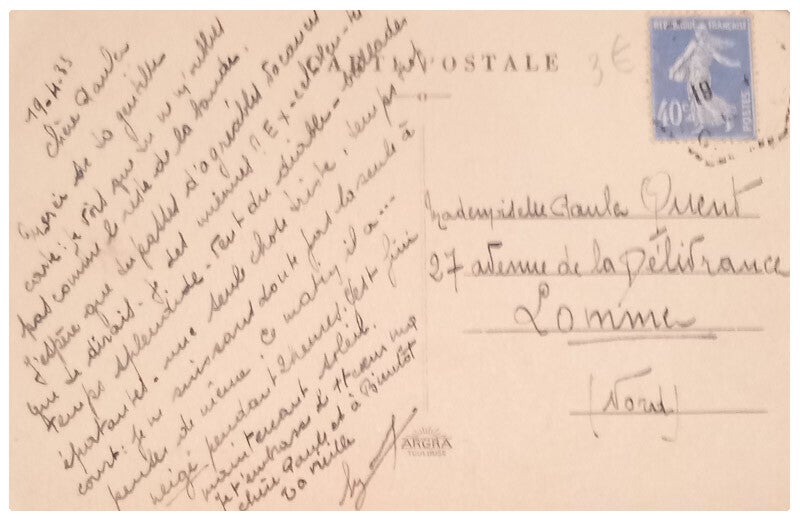 19-4-35
Chère Paula
Merci de ta gentille
carte: je vois que tu ne m'oublies
pas comme le reste de la bande.
J'espère que tu passes d'agréables vacances
que te dirais-je des miennes? Ex-ce
temps splendide - vent du diable - ballades
épatantes - une seule chose triste, temps trop
court: je ne suis sans doute pas la seule à
penser de même. Ce matin, il a...
neigé pendant 2 heures, c'est fini
maintenant soleil.
Je t'embrasse d'tt cœur ma
chère Paule et à Bientôt
ta vieille
CARTE POSTALE
3€
REPUBLIQUE FRANÇAISE
40c
POSTES
18
Mademoiselle Paula Quent
27 avenue de la Délivrance
Lomme
(Nord)
ARGRA
TOULOUSE